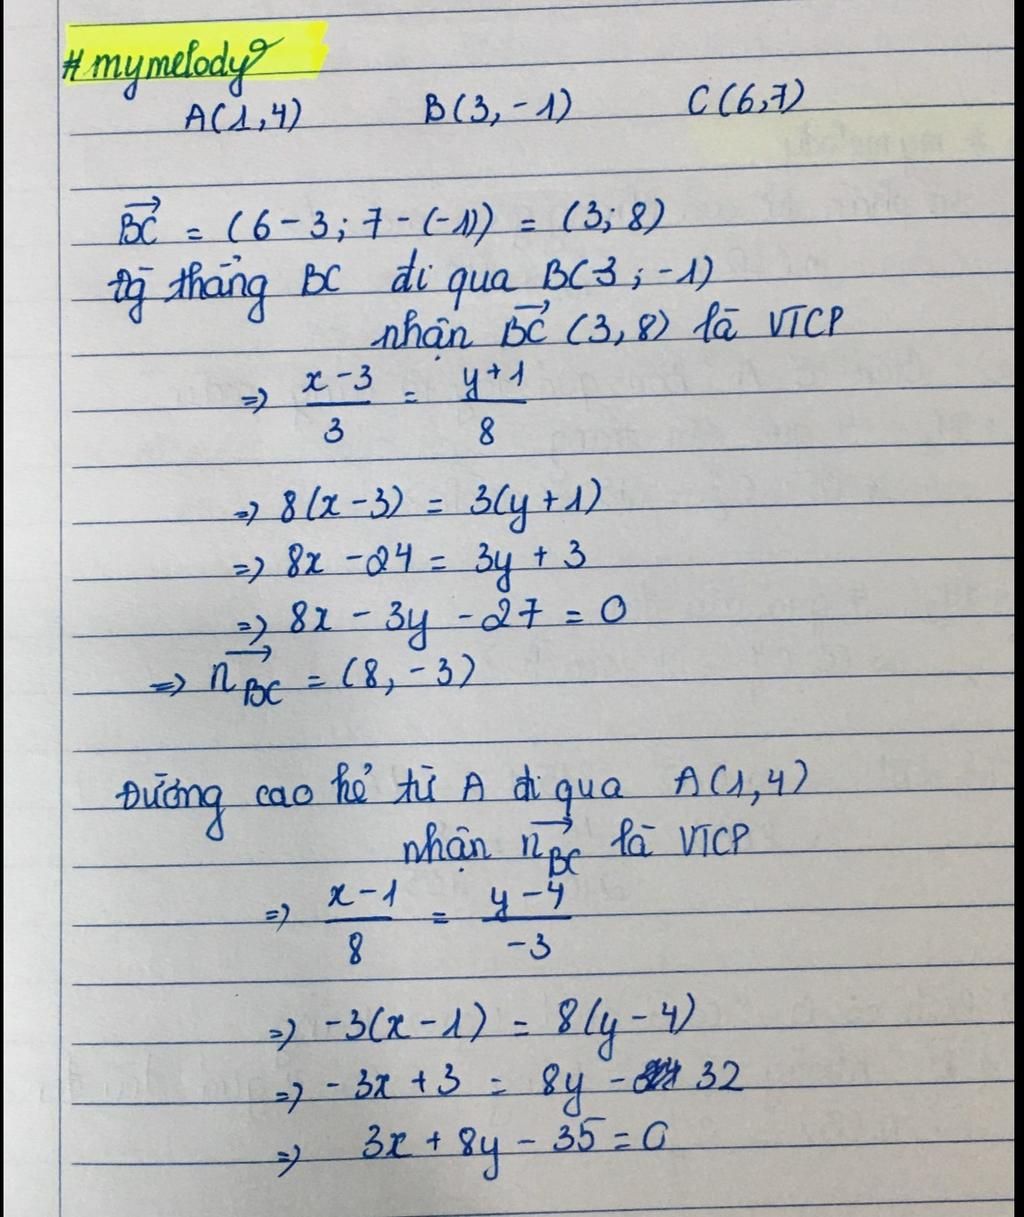 #mymelody
A(1,4) B(3,-1) C(6,7)
BC = (6-3; 7-(-1)) = (3; 8)
đg thẳng BC đi qua B(3; -1)
nhận BC (3,8) là VTCP
=> x-3/3 = y+1/8
=> 8(x-3) = 3(y+1)
=> 8x - 24 = 3y + 3
=> 8x - 3y - 27 = 0
=> n BC = (8, -3)
Đường cao kẻ từ A đi qua A(1,4)
nhận n BC là VTCP
=> x-1/8 = y-4/-3
=> -3(x-1) = 8(y-4)
=> -3x + 3 = 8y - 32
=> 3x + 8y - 35 = 0